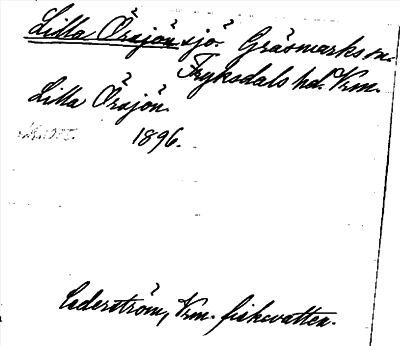 Lilla Örsjön sjö. Gräsmarks sn.
Fryksdals hd. Vrm.
Lilla Örsjön
1896.
Cederström, Vrm. fiskevatten.